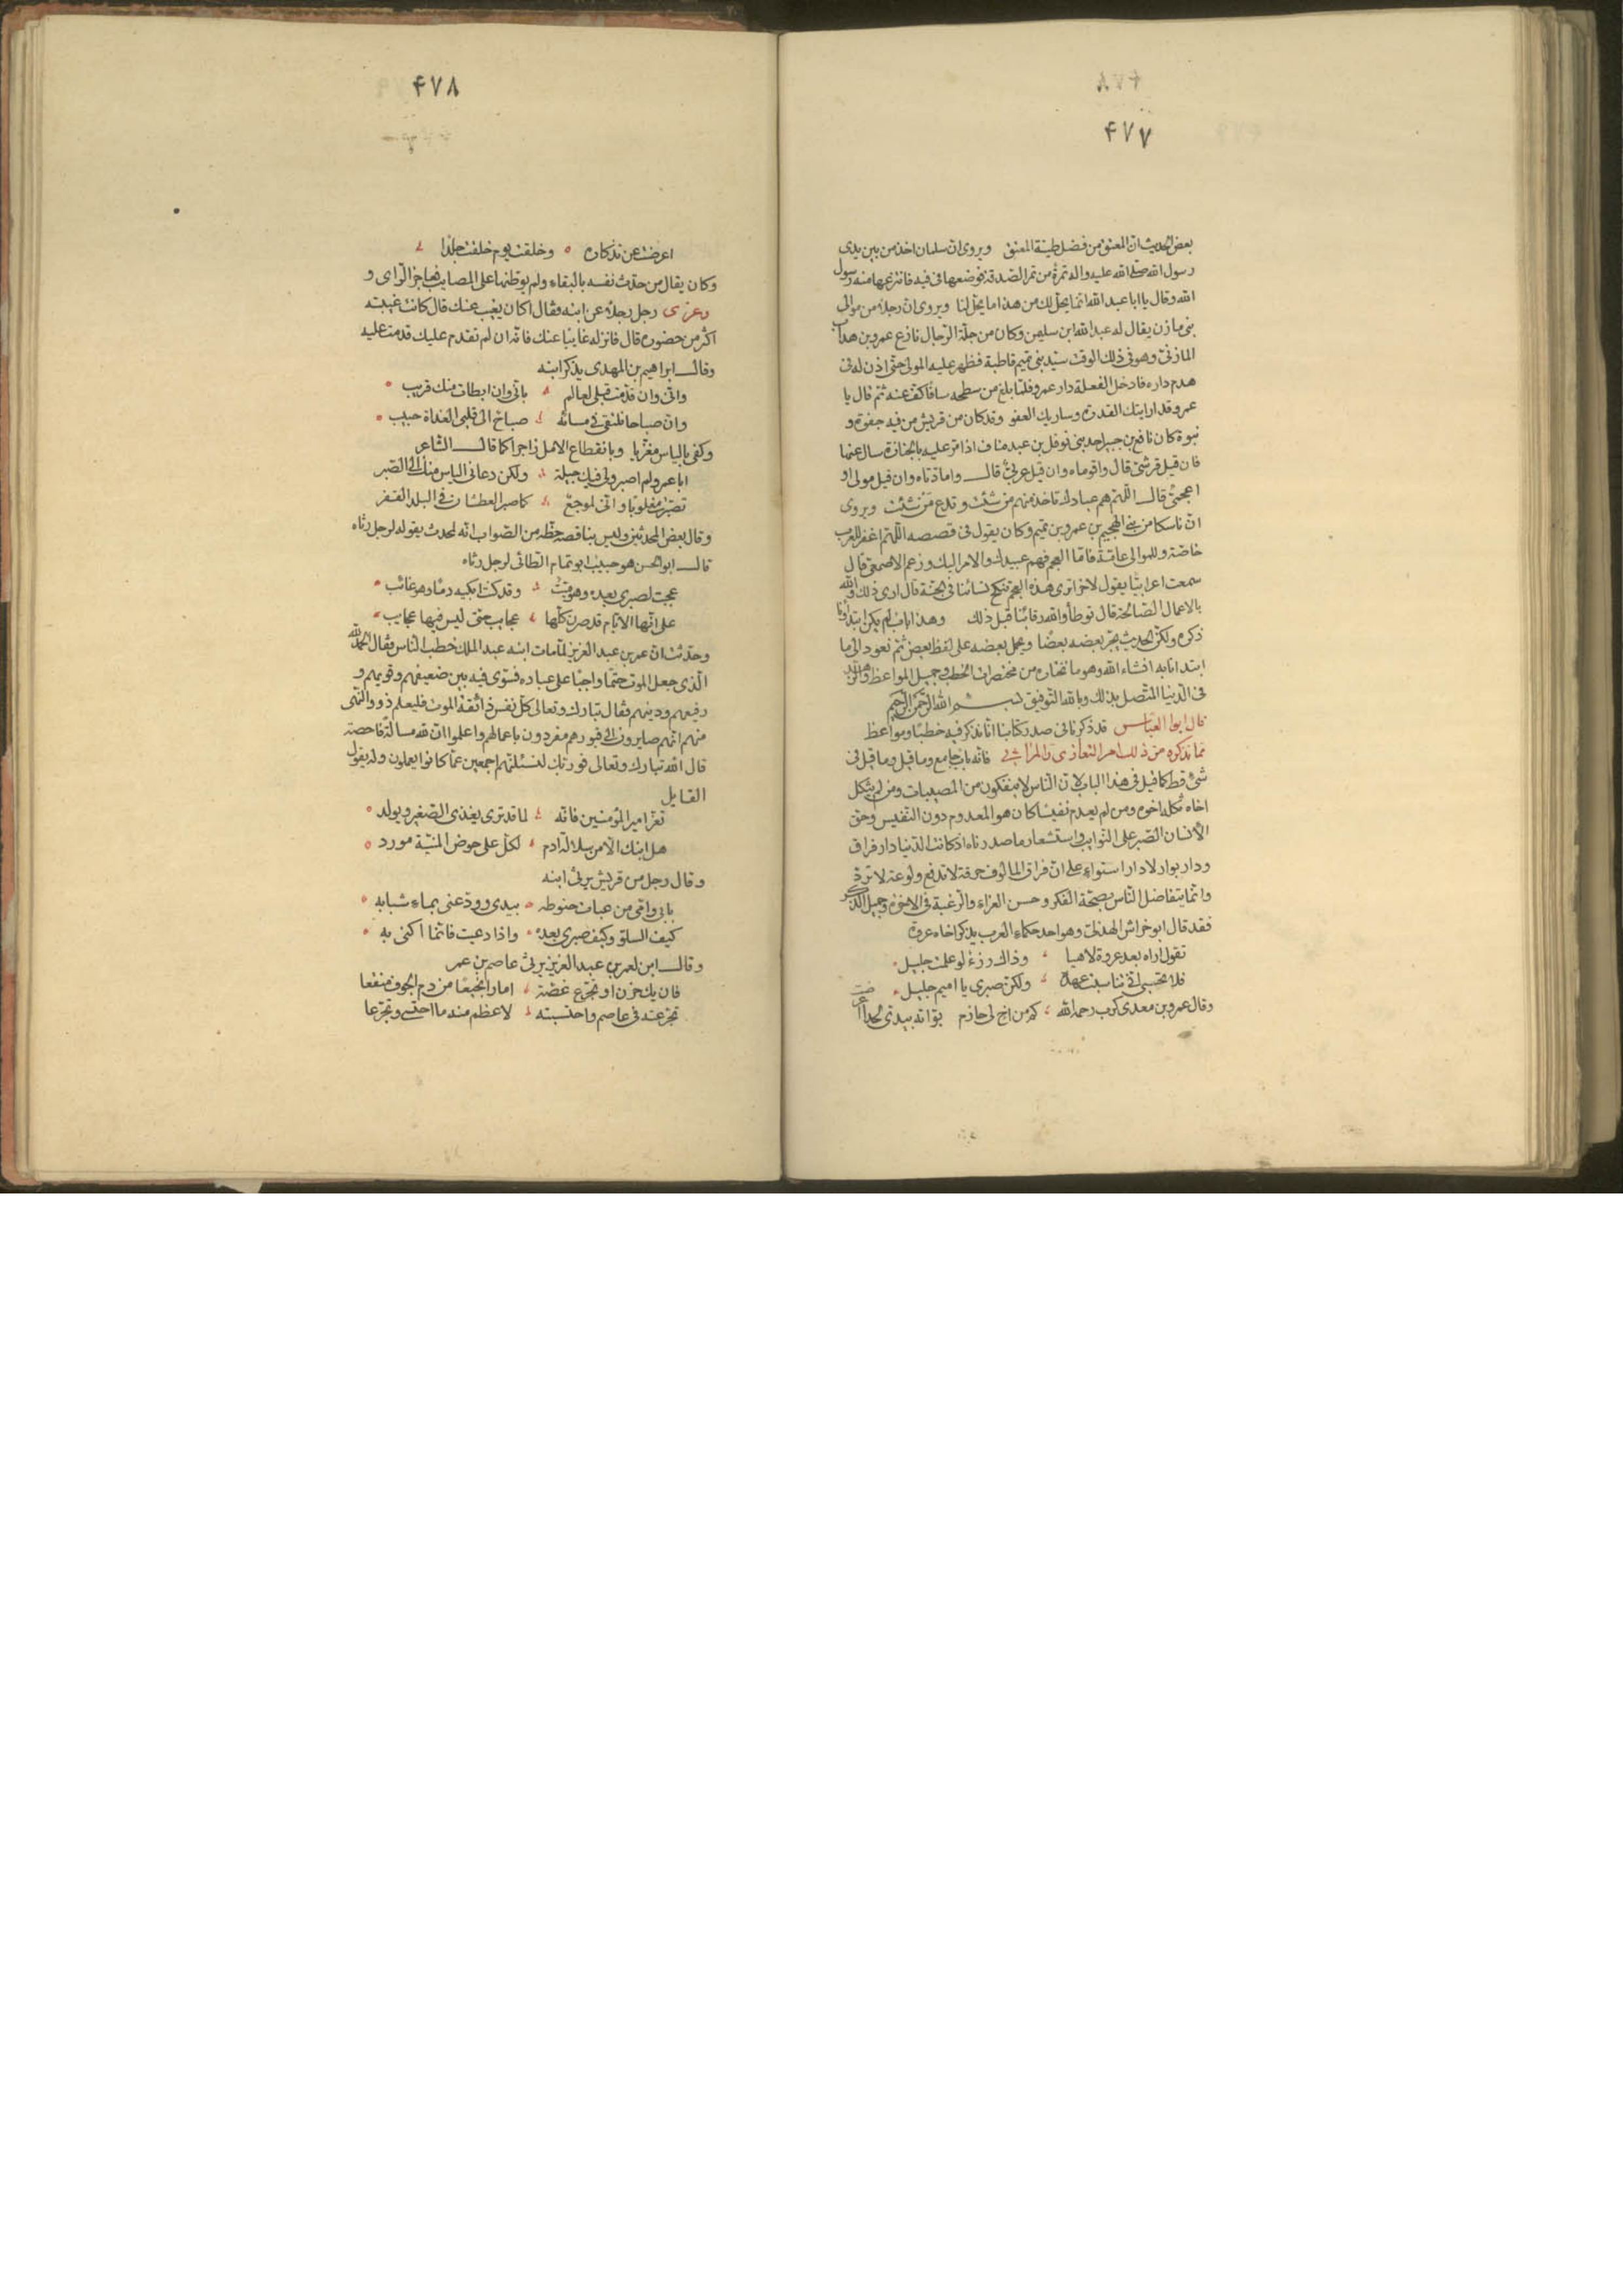 ۴۷۷
بعض الحديث ان المعتق من فضل طينة المعتق ويروى ان سلمان اخذ من بين يدى
رسول الله صلى الله عليه واله تمرة من تمر الصدقة فوضعها فى فيه فانتزعها منه رسول
الله وقال يا ابا عبد الله انما يحل لك من هذا ما يحل لنا ويروى ان رجلا من موالى
بنى مازن يقال له عبد الله ابن سليمن وكان من جلة الرجال نازع عمرو بن هداب
المازنى وهو فى ذلك الوقت سيد بنى تميم قاطبة فظهر عليه المولى حتى اذن له فى
هدم داره فادخل الفعلة دار عمرو فلما بلغ من سطحه سافا كف عنه ثم قال يا
عمرو قد اريتك القدرة وساريك العفو وقد كان من قريش من فيه جفوة و
نبوة كان نافع بن جبير احد بنى نوفل بن عبد مناف اذا مر عليه بالجنازة سال عنها
فان قيل قرشى قال واقوماه وان قيل عربى قال وامادتاه وان قيل مولى او
اعجمى قال اللهم هم عبادك تاخذ منهم من شئت وتدع من شئت ويروى
ان ناسكا من بنى الهجيم بن عمرو بن تميم وكان يقول فى قصصه اللهم اغفر للعرب
خاصة وللموالى عامة فاما العجم فهم عبيدك والامر اليك وزعم الاصمعى قال
سمعت اعرابيا يقول لاخر اترى هذه العجم تنكح نسائنا فى الجنة قال ارى ذلك والله
بالاعمال الصالحة قال توطأ والله رقابنا قبل ذلك وهذا باب لم يكن ابتدأنا
ذكره ولكن الحديث يجر بعضه بعضا ويحمل بعضه على لفظ بعض ثم نعود الى ما
ابتدانا به انشاء الله وهو ما نختاره من مختصرات الخطب وجميل المواعظ والزهد
فى الدنيا المتصل بذلك وبالله التوفيق بسم الله الرحمن الرحيم
قال ابو العباس قد ذكرنا فى صدر كتابنا انا نذكر فيه خطبا ومواعظ
مما نذكره من ذلك امر التعازى والمراثى فانه باب جامع وما قيل وما قيل فى
شئ قط كما قيل فى هذا الباب لان الناس لا ينفكون من المصيبات ومن لم يثكل
اخاه ثكله اخوه ومن لم يعدم نفيسا كان هو المعدوم دون النفيس وحق
الأنسان الصبر على النوايب واستشعار ما صدرناه اذ كانت الدنيا دار فراق
ودار بوار لا دار استواء على ان فراق المالوف حرقة لا تدفع ولوعة لا ترد
وانما يتفاضل الناس بصحة الفكر وحسن العزاء والرغبة فى الاخرة وجميل الذكر
فقد قال ابو خراش الهذلى وهو احد حكماء العرب يذكر اخاه عروة
تقول اراه بعد عروة لاهيا وذاك رزء لو علمت جليل
فلا تحسبى انى تناسيت عهده ولكن صبرى يا اميم جليل
وقال عمرو بن معدى كرب رحمه الله كم من اخ لى حازم بوأته بيدى لحدا
۴۷۸
اعرضت عن تذكاره وخلقت يوم خلقت جلدا
وكان يقال من حدث نفسه بالبقاء ولم يوطنها على المصايب فعاجز الراى و
وعزى رجل رجلا عن ابنه فقال اكان يغيب عنك قال كانت غيبته
اكثر من حضوره قال فانزله غايبا عنك فانه ان لم تقدم عليك قدمت عليه
وقال ابراهيم بن المهدى يذكر ابنه
وانى وان قدمت قبلى لعالم بانى وان ابطات منك قريب
وان صباحا نلتقى فى مسائه صباح الى قلبى الغداة حبيب
وكفى بالياس معزيا وبانقطاع الامل زاجرا كما قال الشاعر
ابا عمرو لم اصبر ولى فيك حيلة ولكن دعانى الياس منك الى الصبر
تصبرت مغلوبا وانى لموجع كما صبر العطشان فى البلد القفر
وقال بعض المحدثين وليس بناقصه حظه من الصواب انه لمحدث يقوله لرجل رثاه
قال ابو الحسن هو حبيب ابو تمام الطائى لرجل رثاه
عجبت لصبرى بعده وهو ميت وقد كنت ابكيه دما وهو غائب
على انها الايام قد صرن كلها عجايب حتى ليس فيها عجايب
وحدثت ان عمر بن عبد العزيز لما مات ابنه عبد الملك خطب الناس فقال الحمد لله
الذى جعل الموت حتما واجبا على عباده فسوى فيه بين ضعيفهم وقويهم و
رفيعهم ودنيهم فقال تبارك وتعالى كل نفس ذائقة الموت فليعلم ذوو النهى
منهم انهم صايرون الى قبورهم مفردون باعمالهم واعلموا ان لله مسالة فاحصة
قال الله تبارك وتعالى فوربك لنسئلنهم اجمعين عما كانوا يعملون وله يقول
القايل
تعز امير المؤمنين فانه لما قد ترى يغذى الصغير ويولد
هل ابنك الا من سلالة ادم لكل على حوض المنية مورد
وقال رجل من قريش يرثى ابنه
بابى وامى من عبات حنوطه بيدى وودعنى بماء شبابه
كيف السلو وكيف صبرى بعده واذا دعيت فانما اكنى به
وقال ابن لعمر بن عبد العزيز يرثى عاصم بن عمر
فان يك حزن او تجرع غصة امارا نجيعا من دم الجوف منقعا
تجرعته فى عاصم واحتسبته لاعظم منه ما احتسى وتجرعا